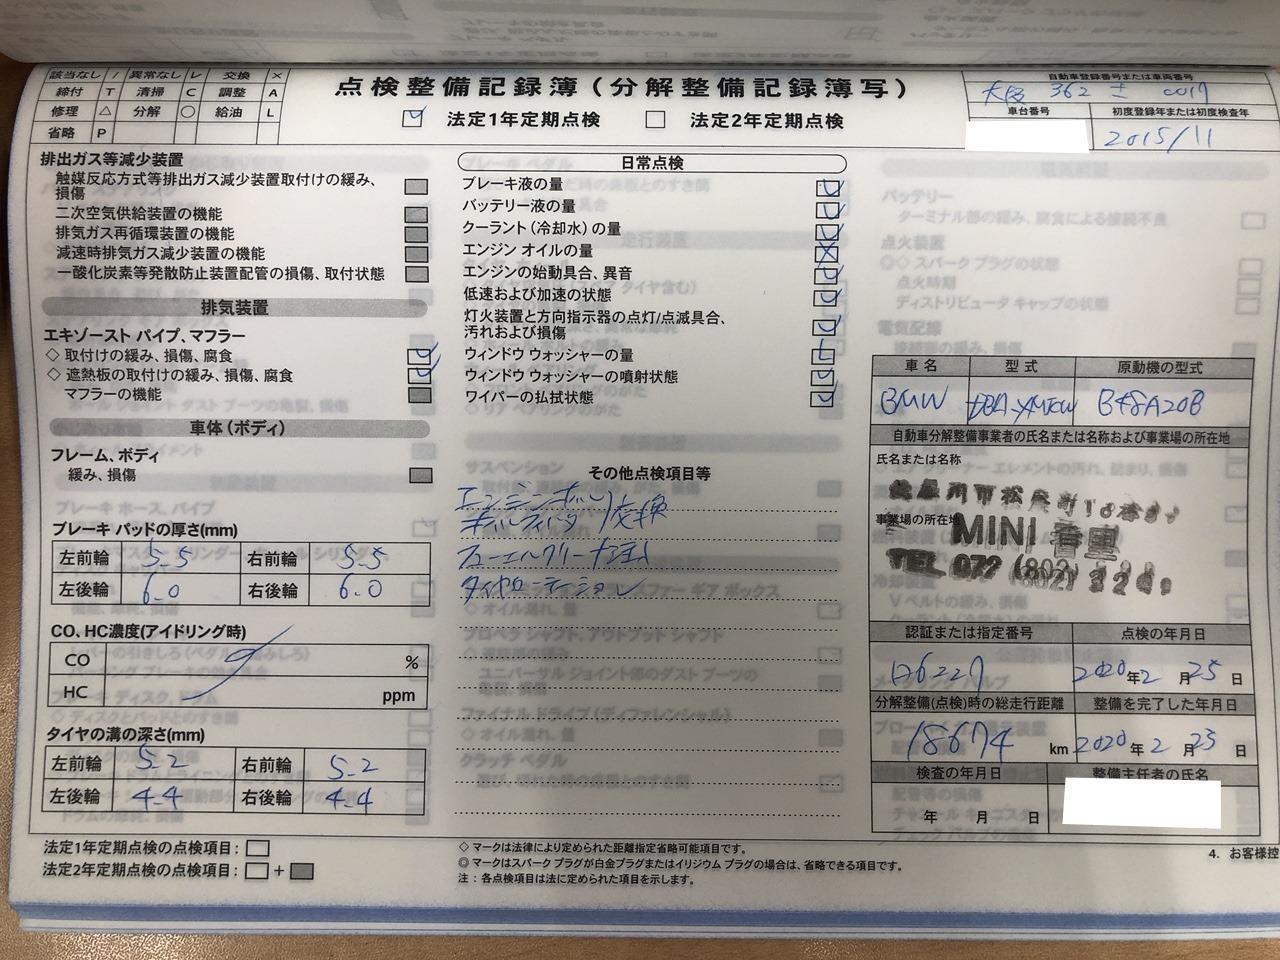 該当なし / 異常なし レ 交換 ×
締付 T 清掃 C 調整 A
修理 △ 分解 ○ 給油 L
省略 P
点検整備記録簿（分解整備記録簿写）
法定1年定期点検 法定2年定期点検
自動車登録番号または車両番号
362
車台番号 初度登録年または初度検査年
2015/11
排出ガス等減少装置
触媒反応方式等排出ガス減少装置取付けの緩み、
損傷
二次空気供給装置の機能
排気ガス再循環装置の機能
減速時排気ガス減少装置の機能
一酸化炭素等発散防止装置配管の損傷、取付状態
排気装置
エキゾースト パイプ、マフラー
◇ 取付けの緩み、損傷、腐食
◇ 遮熱板の取付けの緩み、損傷、腐食
マフラーの機能
車体（ボディ）
フレーム、ボディ
緩み、損傷
ブレーキ パッドの厚さ(mm)
左前輪 5.5 右前輪 5.5
左後輪 6.0 右後輪 6.0
CO、HC濃度(アイドリング時)
CO %
HC ppm
タイヤの溝の深さ(mm)
左前輪 5.2 右前輪 5.2
左後輪 4.4 右後輪 4.4
法定1年定期点検の点検項目：
法定2年定期点検の点検項目： +
日常点検
ブレーキ液の量
バッテリー液の量
クーラント（冷却水）の量
エンジン オイルの量
エンジンの始動具合、異音
低速および加速の状態
灯火装置と方向指示器の点灯/点滅具合、
汚れおよび損傷
ウィンドウ ウォッシャーの量
ウィンドウ ウォッシャーの噴射状態
ワイパーの払拭状態
その他点検項目等
エンジンオイル
オイルフィルタ 交換
タイヤローテーション
◇ マークは法律により定められた距離指定省略可能項目です。
◎ マークはスパーク プラグが白金プラグまたはイリジウム プラグの場合は、省略できる項目です。
注： 各点検項目は法に定められた項目を示します。
車名 型式 原動機の型式
BMW B48A20B
自動車分解整備事業者の氏名または名称および事業場の所在地
氏名または名称
事業場の所在地
MINI
TEL 072
認証または指定番号 点検の年月日
2020年2月25日
分解整備(点検)時の総走行距離 整備を完了した年月日
18674 km 2020年2月25日
検査の年月日 整備主任者の氏名
年 月 日
4. お客様控